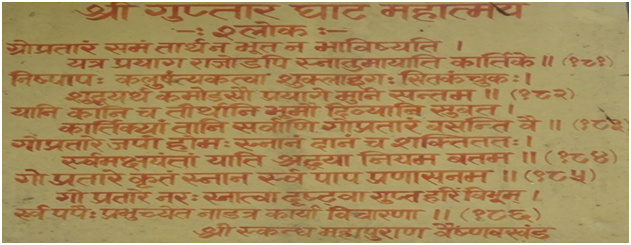 श्री गुप्तार घाट महात्मय
-: श्लोक :-
गोप्रतारं समं तार्थन भूत न भाविष्यति ।
यत्र प्रयाग राजोऽपि स्नातुमायाति कार्तिके ॥ (१८१)
निष्पापः कलुषंत्यकत्वा शुक्लाङ्गः सितकंचुकः ।
शुद्धयर्थ कमोडयौ प्रयागे मुनि सन्तम ॥ (१८२)
यानि कानि च तीर्थानि भूमौ दिव्यानि सुव्रत ।
कार्तिक्यां तानि सर्वाणि गोप्रतारे वसन्ति वै ॥ (१८३)
गोप्रतारे जपो होमः स्नानं दानं च शक्तिततः ।
स्वंमक्षयंतां याति श्रद्धया नियम बतम ॥ (१८४)
गो प्रतारे कृतं स्नान र्स्व पाप प्रणासनम ॥ (१८५)
गो प्रतारे नरः स्नात्वा दृष्टवा गुप्त हरिं विभूम् ।
र्स्व पपैः प्रमुच्येत नाडत्र कार्या विचारणा ॥ (१८६)
श्री स्कन्ध महापुराण वैष्णव खंड